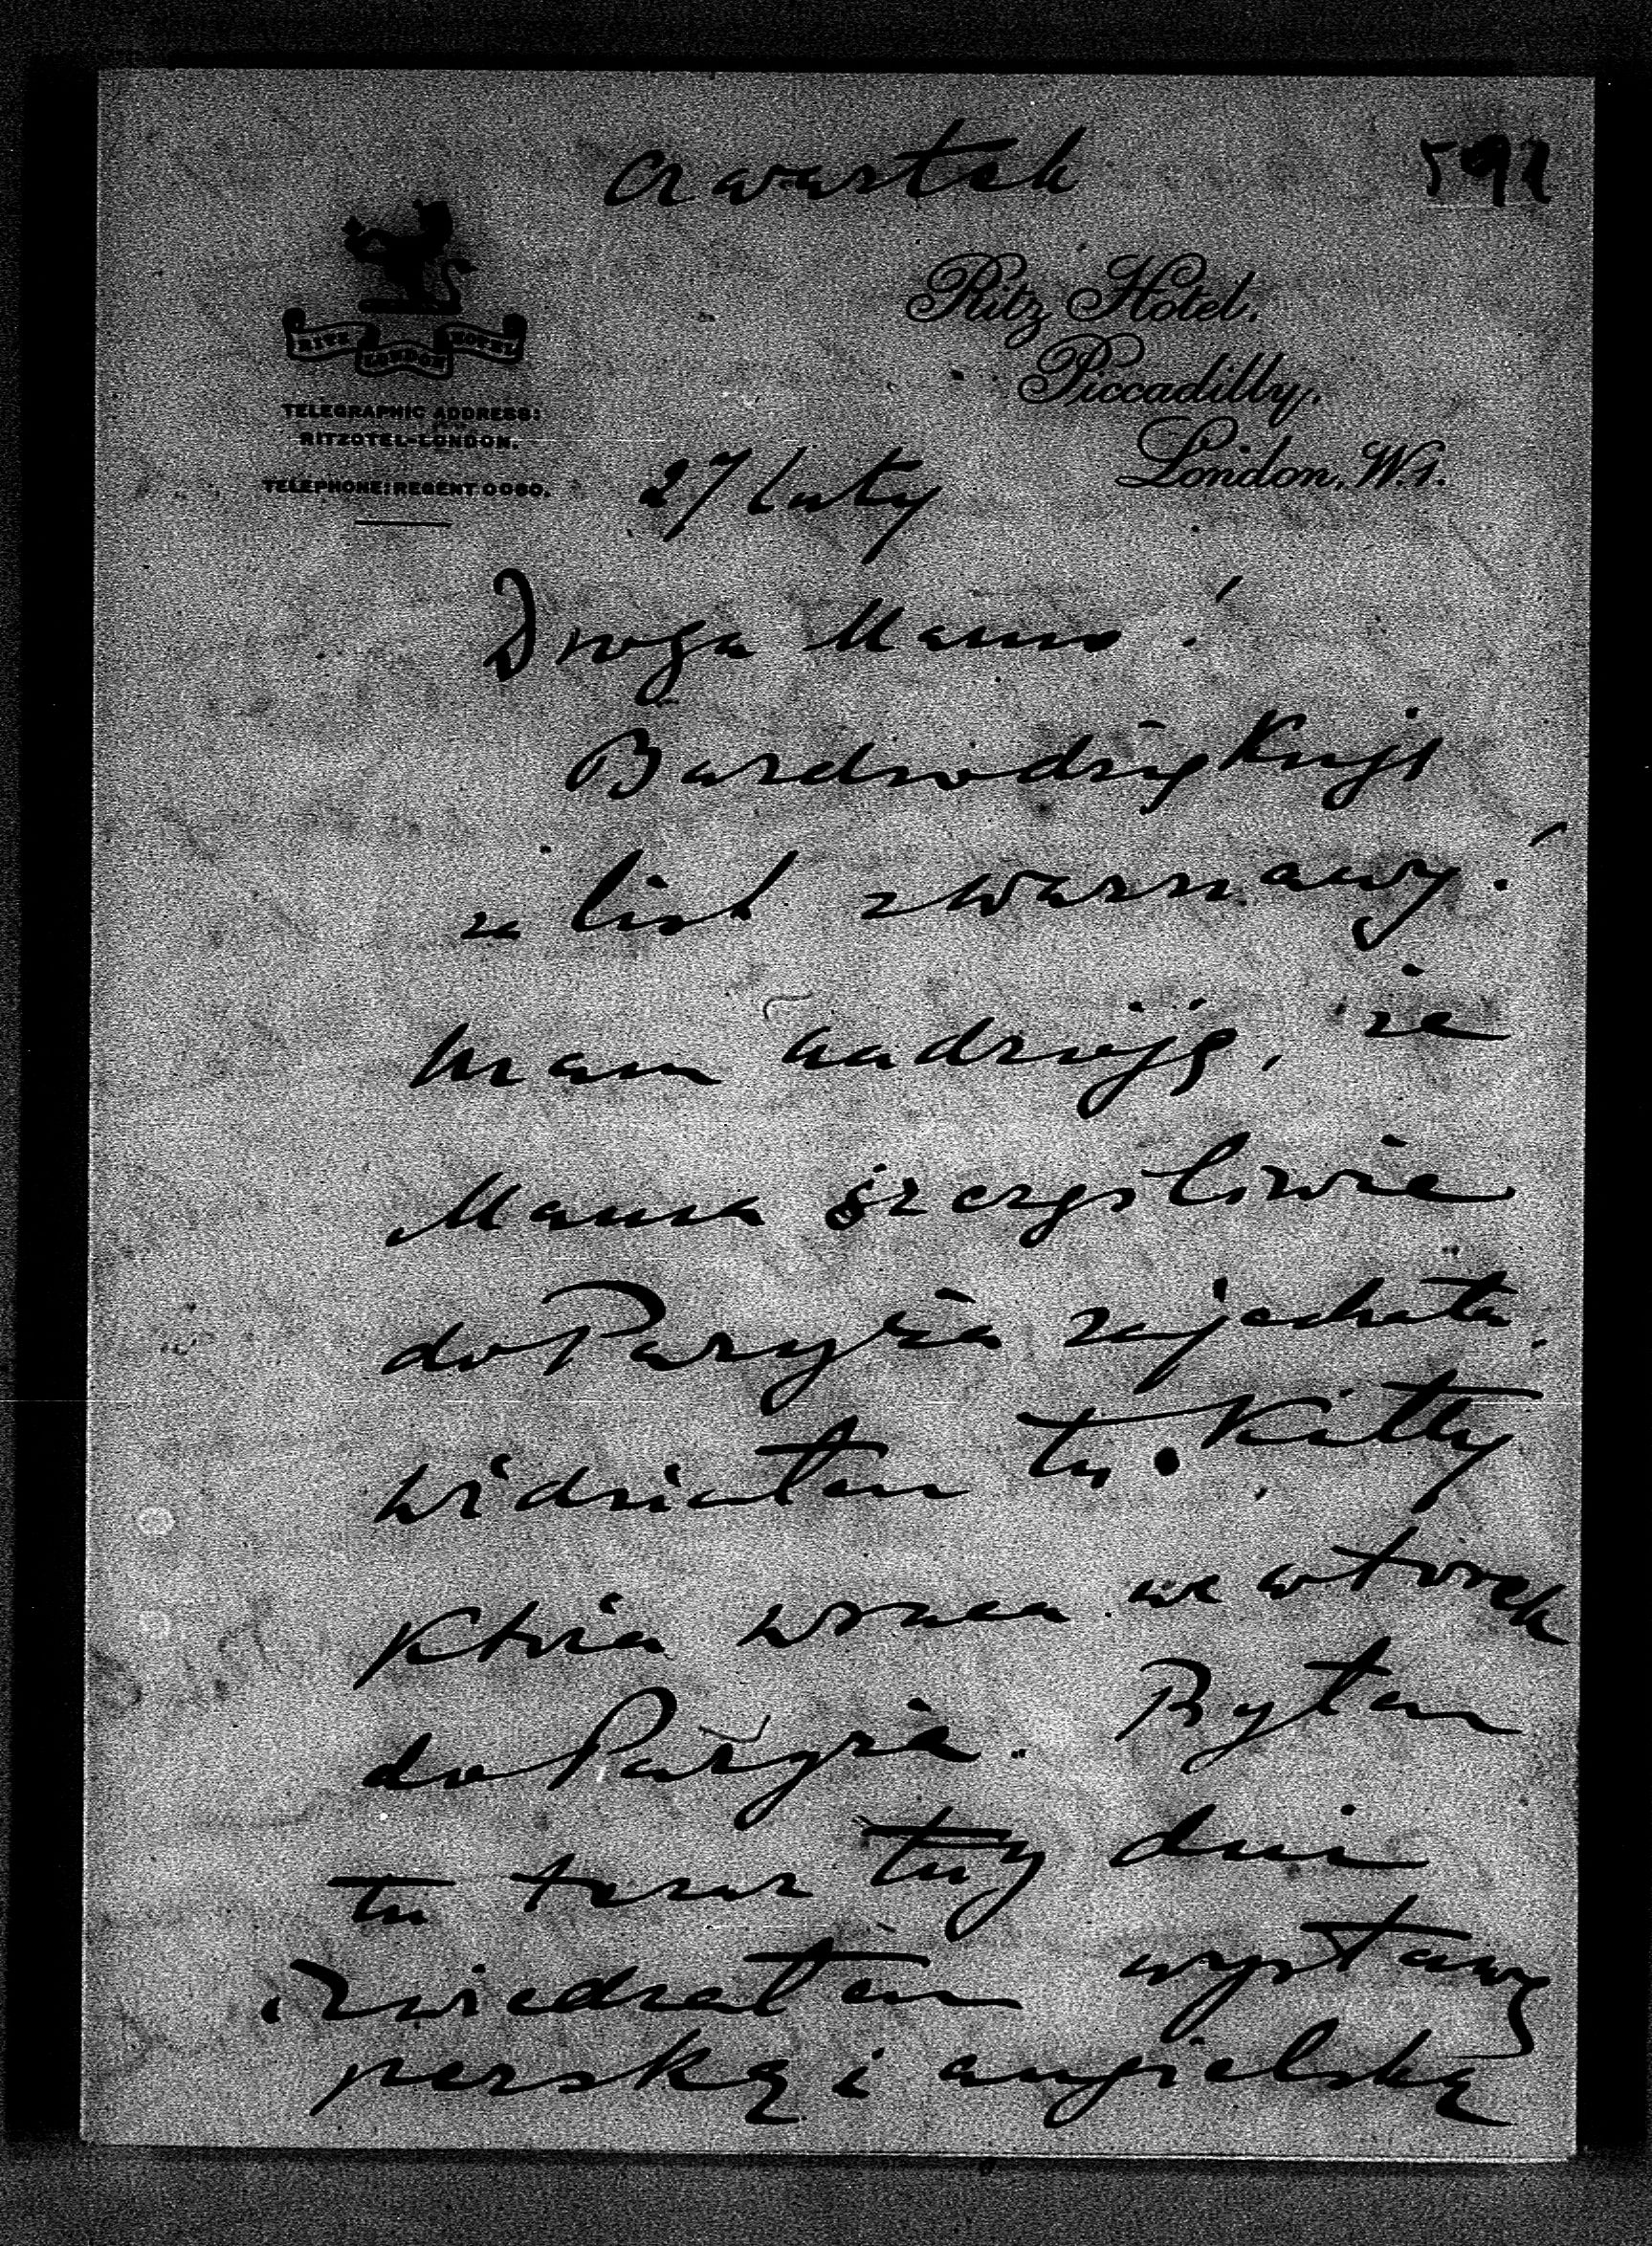 czwartek
RITZ HOTEL
LONDON
TELEGRAPHIC ADDRESS:
RITZOTEL-LONDON.
TELEPHONE: REGENT 0060.
Ritz Hotel,
Piccadilly,
London, W.1.
27 luty
Droga Mamo!
Bardzo dziękuję
za list z Warszawy!
Mam nadzieję, że
Mama szczęśliwie
do Paryża zajechała.
Widziałem tu Kitty
która wraca we wtorek
do Paryża. Byłem
tu teraz trzy dni
i zwiedzałem wystawę
perską i angielską